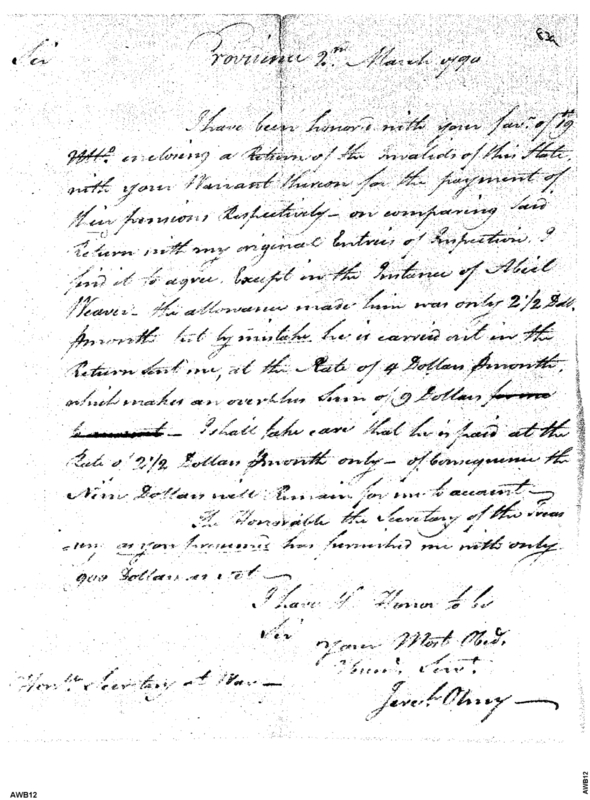 Sir Providence 2.nd March 1790
I have been honor'd with your fav.r of 19
enclosing a Return of the Invalids of this State,
with your Warrant thereon for the payment of
their pensions Respectively – on comparing said
Return with my original Entries of Inspection, I
find it to agree, Except in the Instance of Abiel
Weaver – the allowance made him was only 2 1/2 Doll.
month but by mistake he is carried out in the
Return sent me, at the Rate of 4 Dollars month,
which makes an overplus Sum of 9 Dollars for me
to account – I shall take care that he is paid at the
Rate of 2 1/2 Dollars month only – of Consequence the
Nine Dollars will Remain for me to account –
The Honorable the Secretary of the Treas
ury as you presumed has furnished me with only
900 Dollars as yet –
I have the Honor to be
Sir
your Most Obed.
Hum. Serv.t
Hon.ble Secretary at War –
Jere.h Olney –
AWB12
AWB12